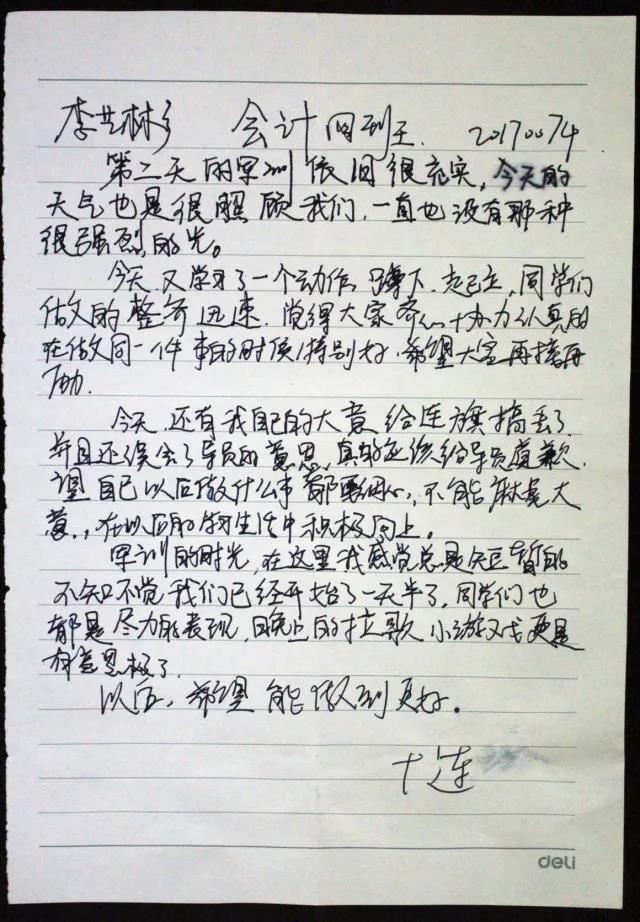 李艺彬 会计网 20170074
第二天的军训依旧很充实,今天的
天气也是很照顾我们,一直也没有那种
很强烈的光。
今天又学习了一个动作 蹲下.起立,同学们
做的整齐迅速.觉得大家齐心协力认真的
在做同一件事的时候特别好.希望大家再接再
励.
今天.还有我自己的大意给连旗搞丢了
并且还误会了导员的意思,真的应该给导员道歉.
望自己以后做什么事都要细心,不能麻痹大
意,在以后的生活中积极向上。
军训的时光,在这里我感觉总是短暂的
不知不觉我们已经开始了一天半了.同学们也
都是尽力的表现,晚上的拉歌小游戏更是
有意思极了.
以后,希望能做到更好。
十连
deli